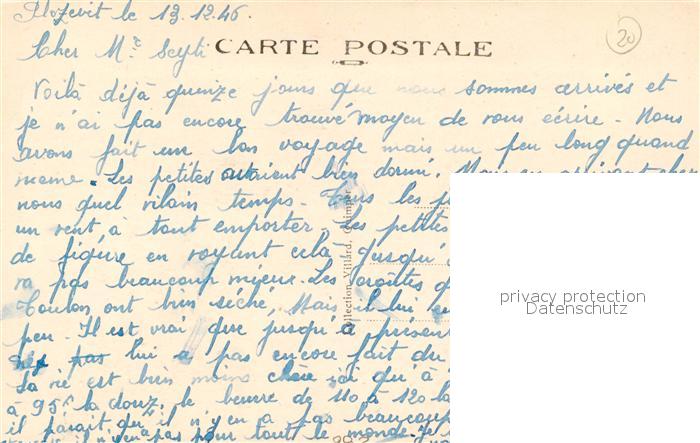 Plozévit le 13.12.46.
20
Cher Mr
CARTE POSTALE
Voilà déjà quinze jours que nous sommes arrivés et
je n'ai pas encore trouvé moyen de vous écrire - Nous
avons fait un bon voyage mais un peu long quand
meme. Les petites avaient bien dormi. Mais en arrivant chez
nous quel vilain temps - Tous les
un vent, à tout emporter - Les petites
de figure en voyant cela - jusqu'
va pas beaucoup mieux - Les
Toulon ont bien séché, Mais il lui en
peu - Il est vrai que jusqu'à présent
pas lui a pas encore fait du
La vie est bien moins chère ici qu'à
à 95f la douz. le beurre de 110 à 120
il paraît qu'il n'y en a pas beaucoup
il n'y en a pas pour tout le monde. Je
Collection Villard, Quimper
privacy protection
Datenschutz